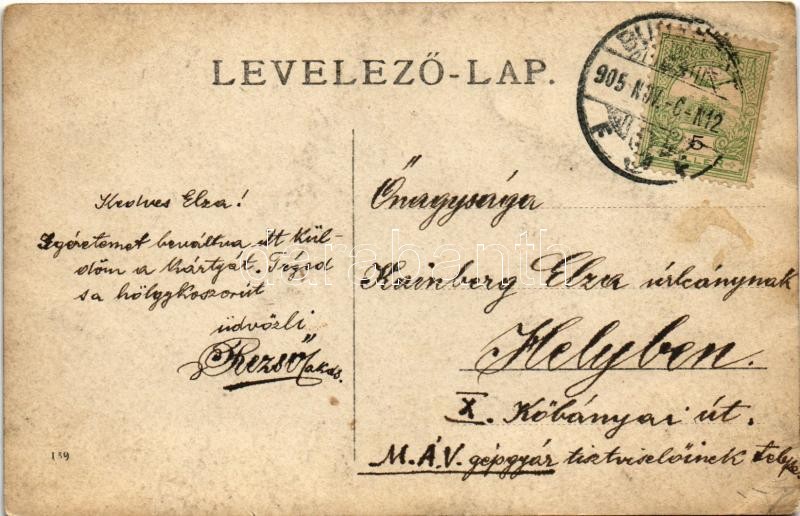 LEVELEZŐ-LAP.
905 NOV
5
Kedves Elza!
Igéretemet beváltva itt kül-
döm a kártyát. Téged
s a hölgykoszorút
üdvözli
Rezső
Őnagysága
Kainberg Elza úrleánynak
Helyben.
X. Kőbányai út.
M.Á.V. gépgyár tisztviselőinek telepe
139
darabanth.com